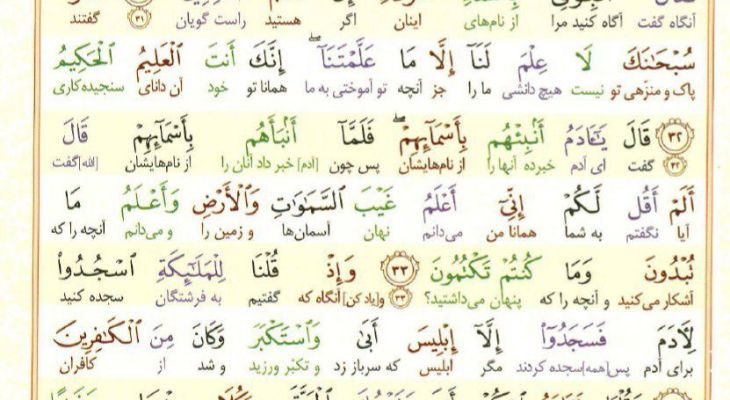 آنگاه گفت آگاه کنید مرا از نام‌های اینان اگر هستید راست گویان ۳۱ گفتند
سُبْحَـٰنَكَ لَا عِلْمَ لَنَآ إِلَّا مَا عَلَّمْتَنَآ إِنَّكَ أَنتَ ٱلْعَلِيمُ ٱلْحَكِيمُ
پاک و منزّهی تو نیست هیچ دانشی ما را جز آنچه تو آموختی به ما همانا تو خود آن دانای سنجیده‌کاری
۳۲ قَالَ يَـٰٓـَٔادَمُ أَنۢبِئْهُم بِأَسْمَآئِهِمْ فَلَمَّآ أَنۢبَأَهُم بِأَسْمَآئِهِمْ قَالَ
۳۲ گفت ای آدم خبرده آنها را از نام‌هایشان پس چون [آدم] خبر داد آنان را از نام‌هایشان [الله] گفت
أَلَمْ أَقُل لَّكُمْ إِنِّىٓ أَعْلَمُ غَيْبَ ٱلسَّمَـٰوَٰتِ وَٱلْأَرْضِ وَأَعْلَمُ مَا
آیا نگفتم به شما همانا من می‌دانم نهان آسمان‌ها و زمین را و می‌دانم آنچه را که
تُبْدُونَ وَمَا كُنتُمْ تَكْتُمُونَ ۳۳ وَإِذْ قُلْنَا لِلْمَلَـٰٓئِكَةِ ٱسْجُدُوا۟
آشکار می‌کنید و آنچه را که پنهان می‌داشتید؟ ۳۳ و[یاد کن] آنگاه که گفتیم به فرشتگان سجده کنید
لِـَٔادَمَ فَسَجَدُوٓا۟ إِلَّآ إِبْلِيسَ أَبَىٰ وَٱسْتَكْبَرَ وَكَانَ مِنَ ٱلْكَـٰفِرِينَ
برای آدم پس [همه] سجده کردند مگر ابلیس که سرباز زد و تکبّر ورزید و شد از کافران